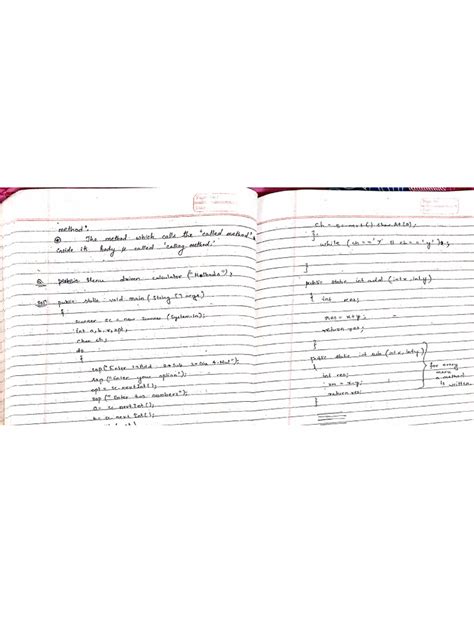 method".
The method which calls the "called method"
inside it body is called "calling method."
Menu driven calculator ("Methods");
public static void main (String [] args)
{
Scanner sc = new Scanner (System.in);
int a, b, x, opt;
char ch;
do
{
sop ("Enter your option");
opt = sc.nextInt();
sop ("Enter two numbers");
a = sc.nextInt();
b = sc.nextInt();
ch = s.next().charAt(0);
};
while (ch == 'Y' ch == 'y');
}
public static int add (int x, int y)
{
int res;
res = x+y;
return res;
}
public static int sub (int x, int y)
{
int res;
res = x-y;
return res;
}
for every
menu
a method
is written